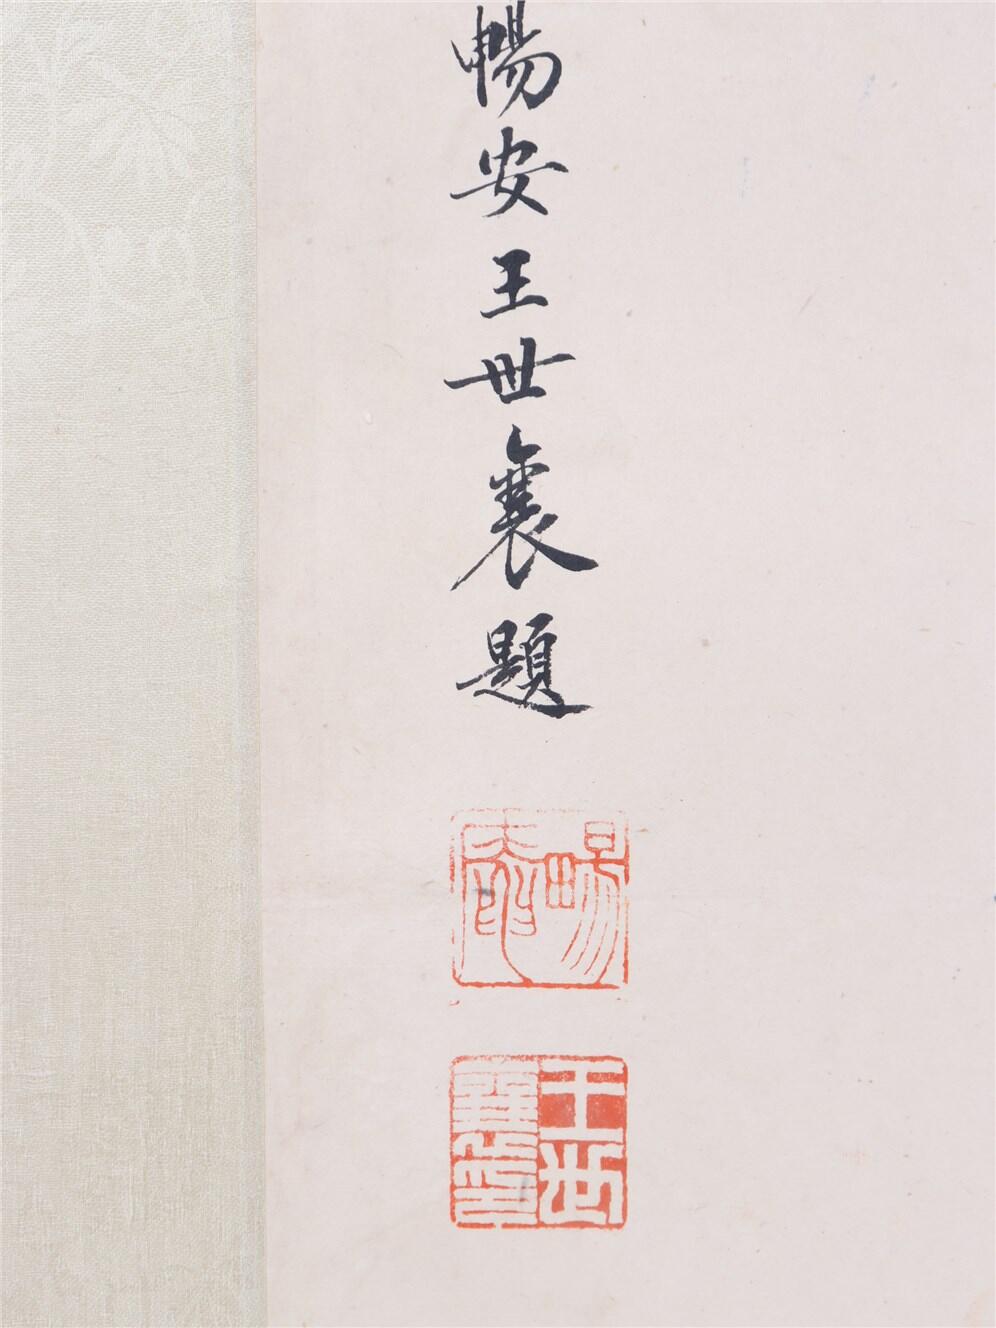 暢安王世襄題
暢安
王世襄印